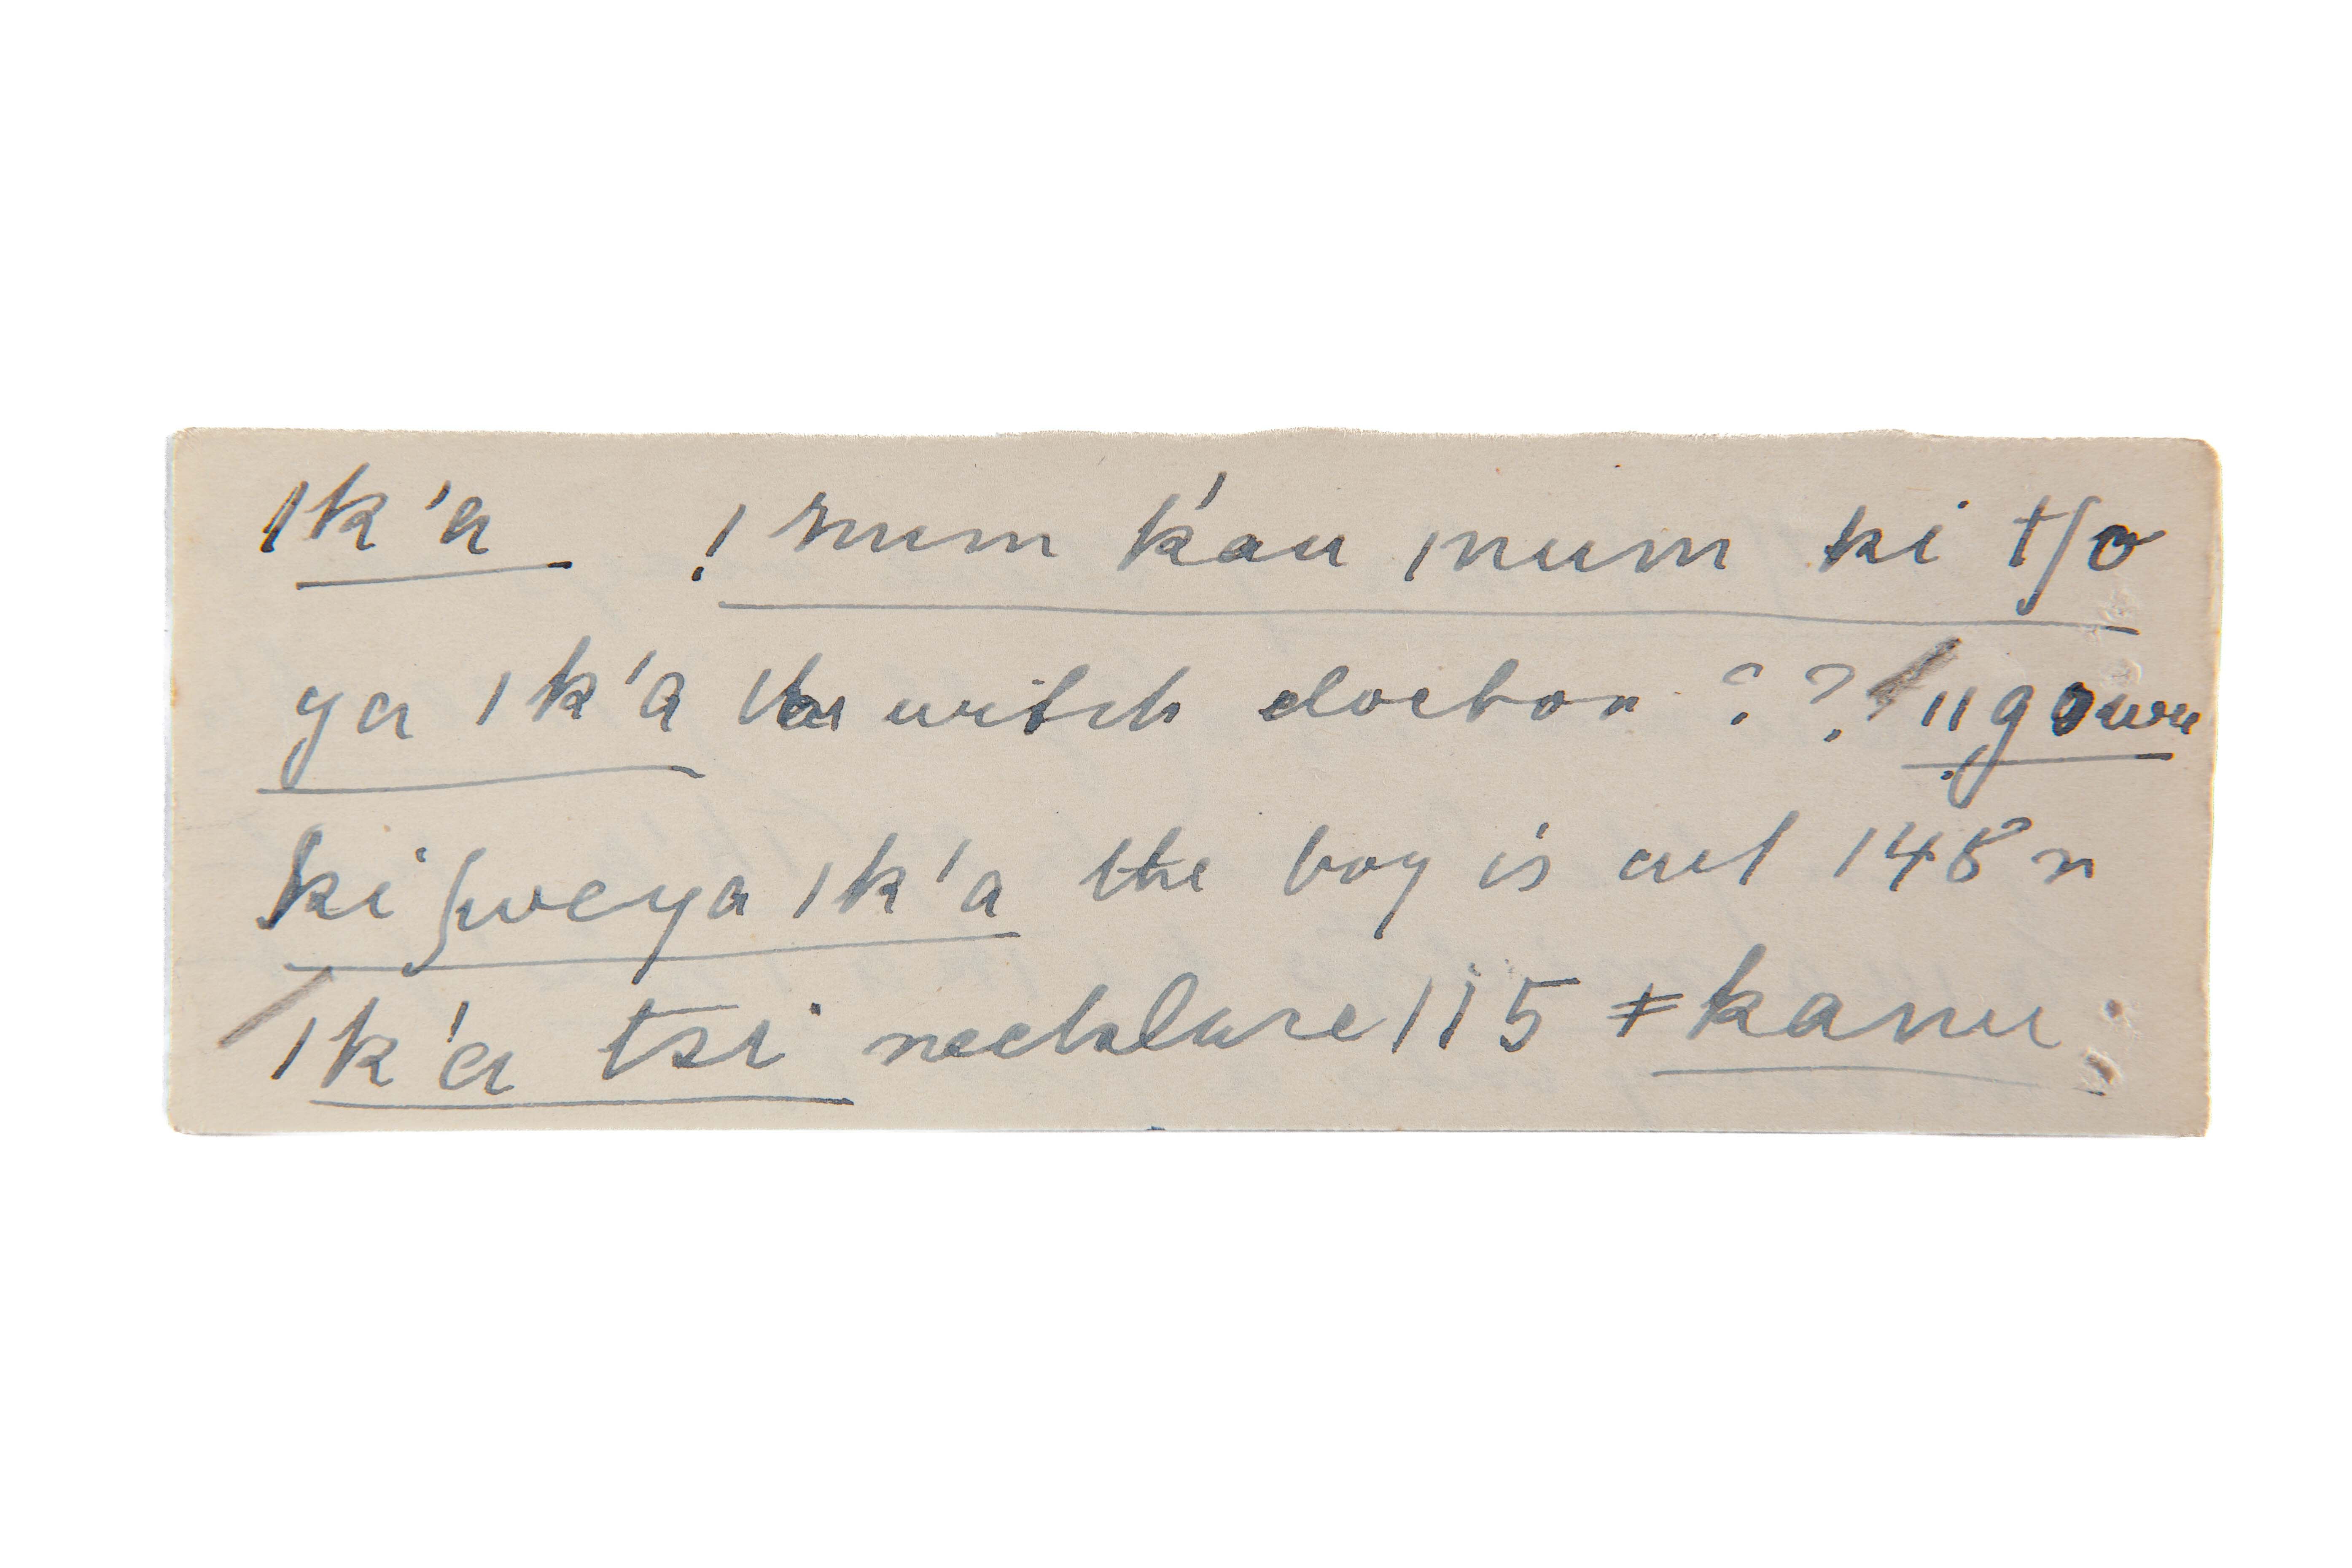 ǀk'a ! num k'au ǀnum ki tʃo
ya ǀk'a the witch doctor ?? ǁgowu
ki ʃweya ǀk'a the boy is cut 148 n
ǀk'a tsi necklace 115 ǂkanu